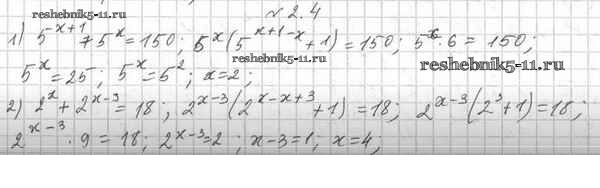 reshebnik5-11.ru
№ 2.4
1) 5^{x+1} + 5^x = 150; 5^x (5^{x+1-x} + 1) = 150; 5^x · 6 = 150;
reshebnik5-11.ru
reshebnik5-11.ru
5^x = 25; 5^x = 5^2; x = 2;
2) 2^x + 2^{x-3} = 18; 2^{x-3} (2^{x-x+3} + 1) = 18; 2^{x-3} (2^3 + 1) = 18;
2^{x-3} · 9 = 18; 2^{x-3} = 2; x - 3 = 1; x = 4;